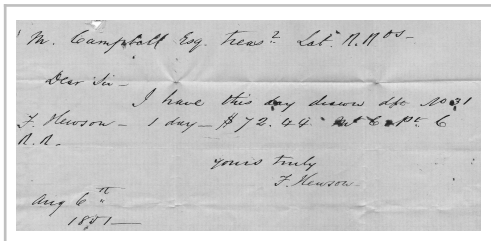 M. Campbell Esq. Treas? Lat. R. Rds -
Dear Sir -
I have this day drawn dft No 31
F. Hewson - 1 day - $72.44 Pt. C
R.R. -
yours truly
F. Hewson -
Aug 6th
1851 -